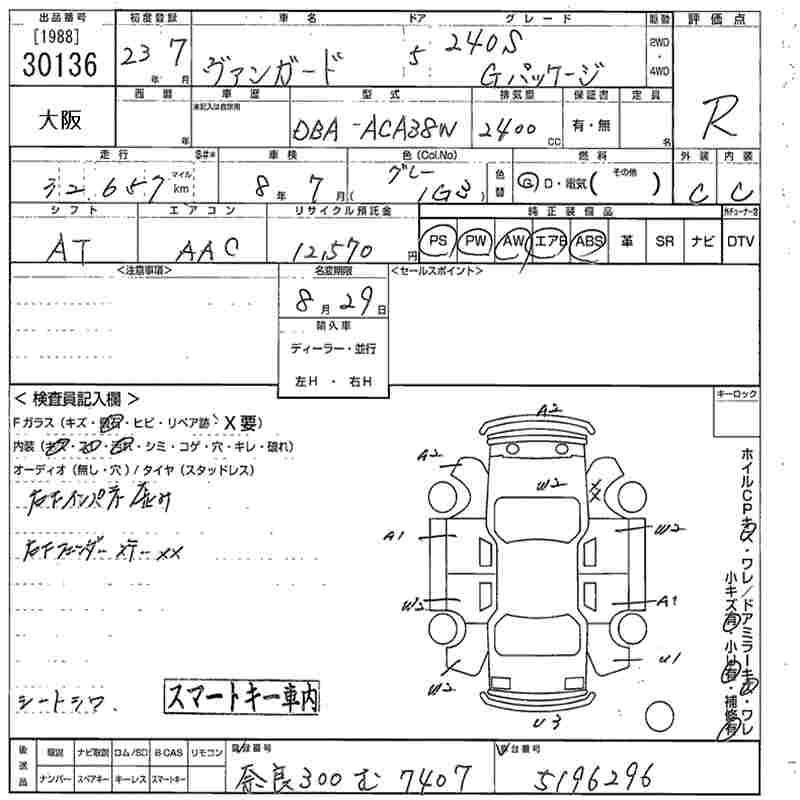 出品番号 初度登録 車名 ドア グレード 駆動 評価点
[1988] 30136 23年 7月 ヴァンガード 5 240S Gパッケージ 2WD・4WD R
大阪 西暦 車歴 型式 排気量 保証書 定員
年 未記入は自家用 DBA-ACA38W 2400CC 有・無 名
走行 車検 色(Col.No) 燃料 外装 内装
32,657 マイル km 8年 7月 グレー (1G3) 色替 G D・電気( その他 ) C C
シフト エアコン リサイクル預託金 純正装備品
AT AAC 12,570円 PS PW AW エアB ABS 革 SR ナビ DTV
<注意事項> 名変期限 <セールスポイント>
8月29日
輸入車
ディーラー・並行
左H・右H
<検査員記入欄> キーロック
Fガラス(キズ・ ・ヒビ・リペア跡・X要)
内装( ・ ・ ・シミ・コゲ・穴・キレ・破れ)
オーディオ(無し・穴)/タイヤ(スタッドレス)
A2
A2
W2
A1
W2
W3
A1
W2
U1
U3
ホイルCPキズ・ワレ/ドアミラーキズ・ワレ
小キズ有・小凹有・補修有
シートシワ スマートキー車内
後送品 取説 ナビ取説 ロム/SD B-CAS リモコン 登録番号 車台番号
ナンバー スペアキー キーレス スマートキー 奈良300む7407 5196296